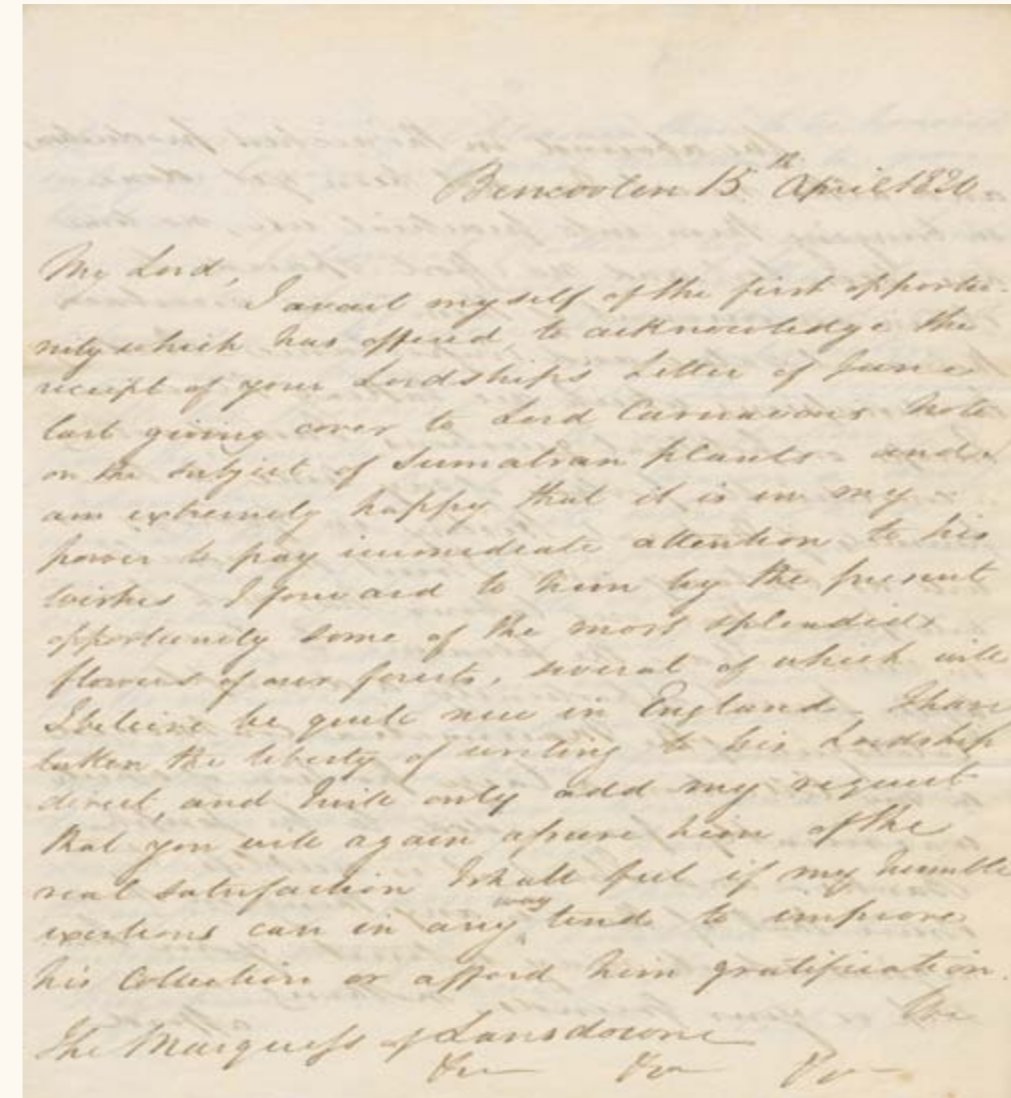 Bencoolen 15th April 1820
My Lord,
I avail myself of the first opportu-
nity which has offered to acknowledge the
receipt of your Lordship's Letter of June
last giving cover to Lord Carnarvons Note
on the subject of Sumatran plants and
am extremely happy that it is in my
power to pay immediate attention to his
wishes I forward to him by the present
opportunity some of the most splendid
flowers of our forests, several of which will
I believe be quite new in England. I have
taken the liberty of writing to his Lordship
direct, and will only add my request
that you will again assure him of the
real satisfaction I shall feel if my humble
exertions can in any way tend to improve
his Collection or afford him gratification.
We
The Marquess of Lansdowne
&c &c &c